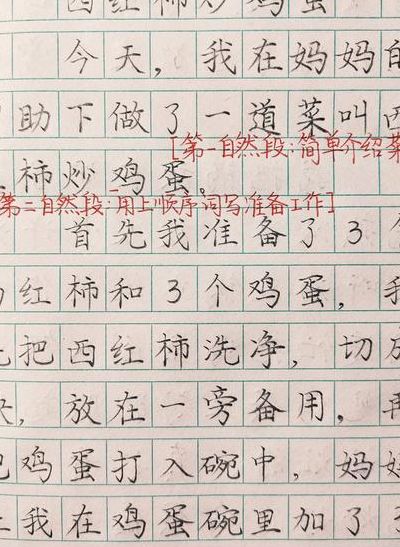 西红柿炒鸡蛋
今天，我在妈妈的
助下做了一道菜叫西
[第一自然段:简单介绍菜
柿炒鸡蛋。
第二自然段:用上顺序词写准备工作]
首先我准备了3个
红柿和3个鸡蛋，我
把西红柿洗净，切成
块，放在一旁备用，再
把鸡蛋打入碗中，妈妈
我在鸡蛋碗里加了3